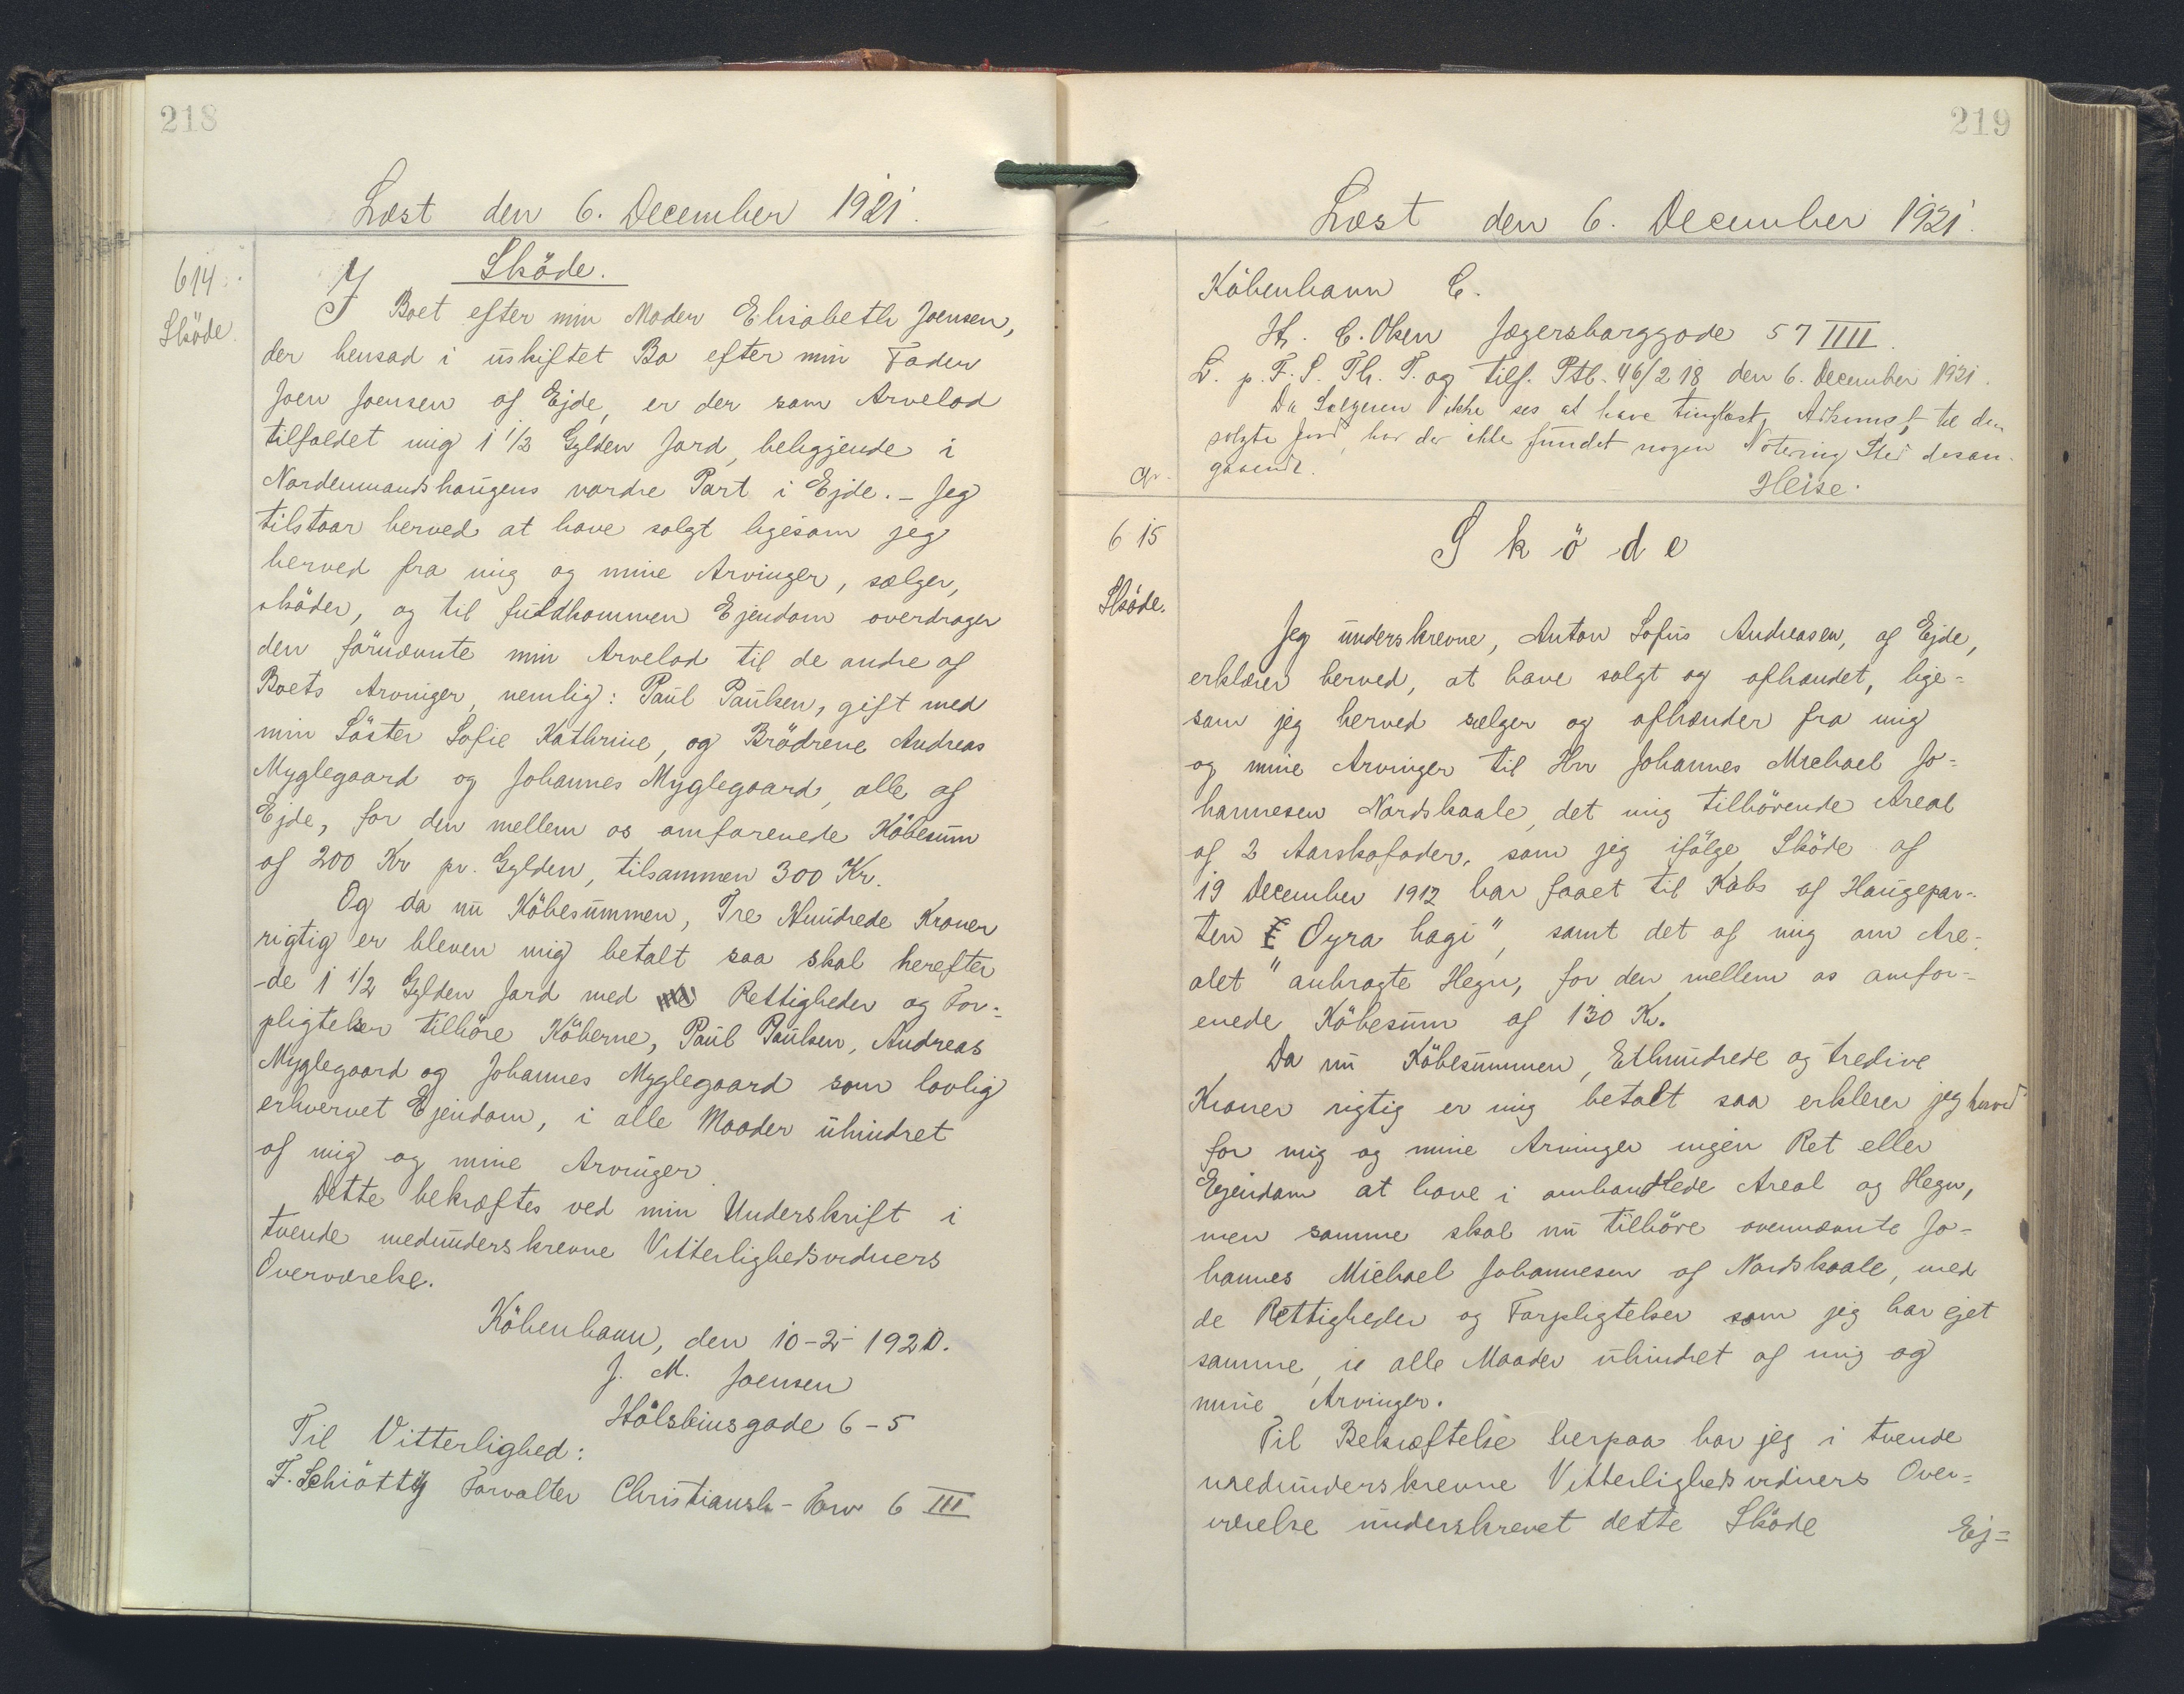 218
Læst den 6. December 1921.
614.
Sköde.
Sköde.
I Boet efter min Moder Elisabeth Joensen,
der hensad i uskiftet Bo efter min Fader
Joen Joensen af Ejde, er der som Arvelod
tilfaldet mig 1 1/2 Gylden Jord, beliggende i
Nordenmandshaugens nordre Part i Ejde. - Jeg
tilstaar herved at have solgt ligesom jeg
herved fra mig og mine Arvinger, sælger,
sköder, og til fuldkommen Ejendom overdrager
den förnævnte min Arvelod til de andre af
Boets Arvinger, nemlig: Paul Paulsen, gift med
min Söster Sofie Kathrine, og Brödrene Andreas
Myglegaard og Johannes Myglegaard, alle af
Ejde, for den mellem os omforenede Köbesum
af 200 Kr pr. Gylden, tilsammen 300 Kr.
Og da nu Köbesummen, Tre Hundrede Kroner
rigtig er bleven mig betalt saa skal herefter
-de 1 1/2 Gylden Jord med Rettigheder og For-
pligtelser tilhöre Köberne, Paul Paulsen, Andreas
Myglegaard og Johannes Myglegaard som lovlig
erhvervet Ejendom, i alle Maader uhindret
af mig og mine Arvinger.
Dette bekræftes ved min Underskrift i
tvende medunderskrevne Vitterlighedsvidners
Overværelse.
Köbenhavn, den 10-2-1920.
J. M. Joensen
Holsteinsgade 6-5
Til Vitterlighed:
F. Schiötty Forvalter Christiansh-Torv 6 III
219
Læst den 6. December 1921.
Köbenhavn C.
H. C. Olsen Jægersborggade 57 IIII.
L. p. F. S. Th. T. og tilf. Ptb. 46/2 18 den 6. December 1921.
Da Sælgeren ikke ses at have tinglæst Adkomst til den
solgte Jord, har der ikke fundet nogen Notering Sted desan-
gaaende.
Heise.
Gr.
615
Sköde.
Sköde
Jeg underskrevne, Anton Sofus Andreasen, af Ejde,
erklærer herved, at have solgt og afhændet, lige=
som jeg herved sælger og afhænder fra mig
og mine Arvinger til Hrr Johannes Michael Jo=
hannesen Nordskaale, det mig tilhörende Areal
af 2 Aarskofoder, som jeg ifölge Sköde af
19 December 1912 har faaet til Köbs af Haugepar-
ten Oyra hagi", samt det af mig om Are-
alet " anbragte Hegn, for den mellem os omfor-
enede Köbesum af 130 Kr.
Da nu Köbesummen, Ethundrede og tredive
Kroner rigtig er mig betalt saa erklerer jeg herved
for mig og mine Arvinger ingen Ret eller
Ejendom at have i omhandlede Areal og Hegn,
men samme skal nu tilhöre ovennævnte Jo-
hannes Michael Johannesen af Nordskaale, med
de Rettigheder og Forpligtelser som jeg har ejet
samme, ie alle Maader uhindret af mig og
mine Arvinger.
Til Bekræftelse herpaa har jeg i tvende
medunderskrevne Vitterlighedsvidners Over=
værelse underskrevet dette Sköde
Ej=